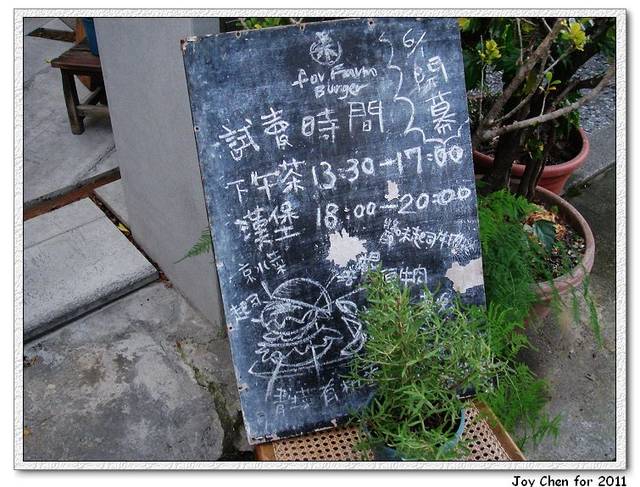 for Farm
Burger
6/1 開幕
試賣時間
下午茶 13:30-17:00
漢堡 18:00-20:00
京水菜
起司
牛肉
Joy Chen for 2011